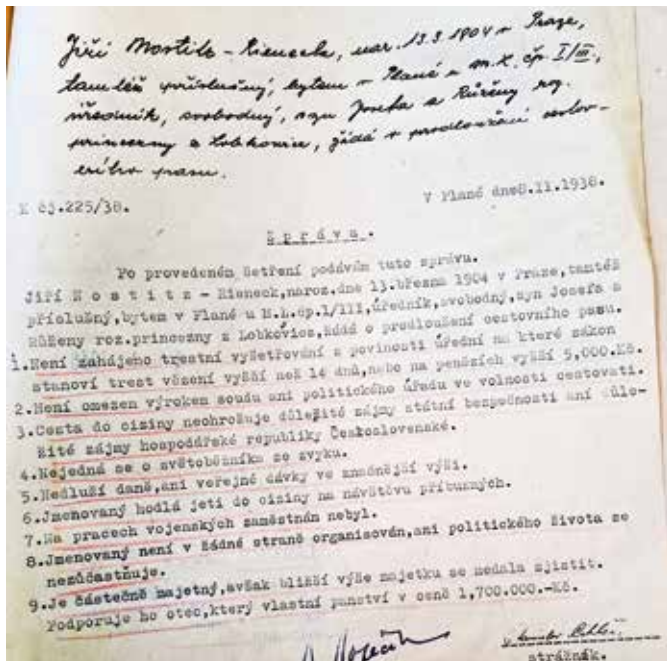 Jiří Nostitz-Rieneck, nar. 13.3.1904 v Praze,
tamtéž příslušný, bytem v Plané u M.L. čp. I/III,
úředník, svobodný, syn Josefa a Růženy roz.
princezny z Lobkovic, žádá o prodloužení cestov-
ního pasu.
K čj.225/38.
V Plané dne8.11.1938.
Z p r á v a .
Po provedeném šetření podávám tuto zprávu.
Jiří N o s t i t z - Rieneck,naroz.dne 13.března 1904 v Praze,tamtéž
příslušný,bytem v Plané u M.L.čp.1/III,úředník,svobodný,syn Josefa a
Růženy roz.princezny z Lobkovics,žádá o prodloužení cestovního pasu.
1.Není zahájeno trestní vyšetřování z povinosti úřední na které zákon
stanoví trest vězení vyšší než 14 dnů,nebo na penězích vyšší 5,000.Kč.
2.Není omezen výrokem soudu ani politického úřadu ve volnosti cestovati.
3.Cesta do ciziny neohrožuje důležité zájmy státní bezpečnosti ani důle-
žité zájmy hospodářské republiky Československé.
4.Nejedná se o světoběžníka ze zvyku.
5.Nedluží daně,ani veřejné dávky ve značnější výši.
6.Jmenovaný hodlá jeti do ciziny na návštěvu příbuzných.
7.Na pracech vojenských zaměstnán nebyl.
8.Jmenovaný není v žádné straně organisován,ani politického života se
nezúčastňuje.
9.Je částečně majetný,avšak bližší výše majetku se nedala zjistit.
Podporuje ho otec,který vlastní panství v ceně 1,700.000.-Kč.
strážník.